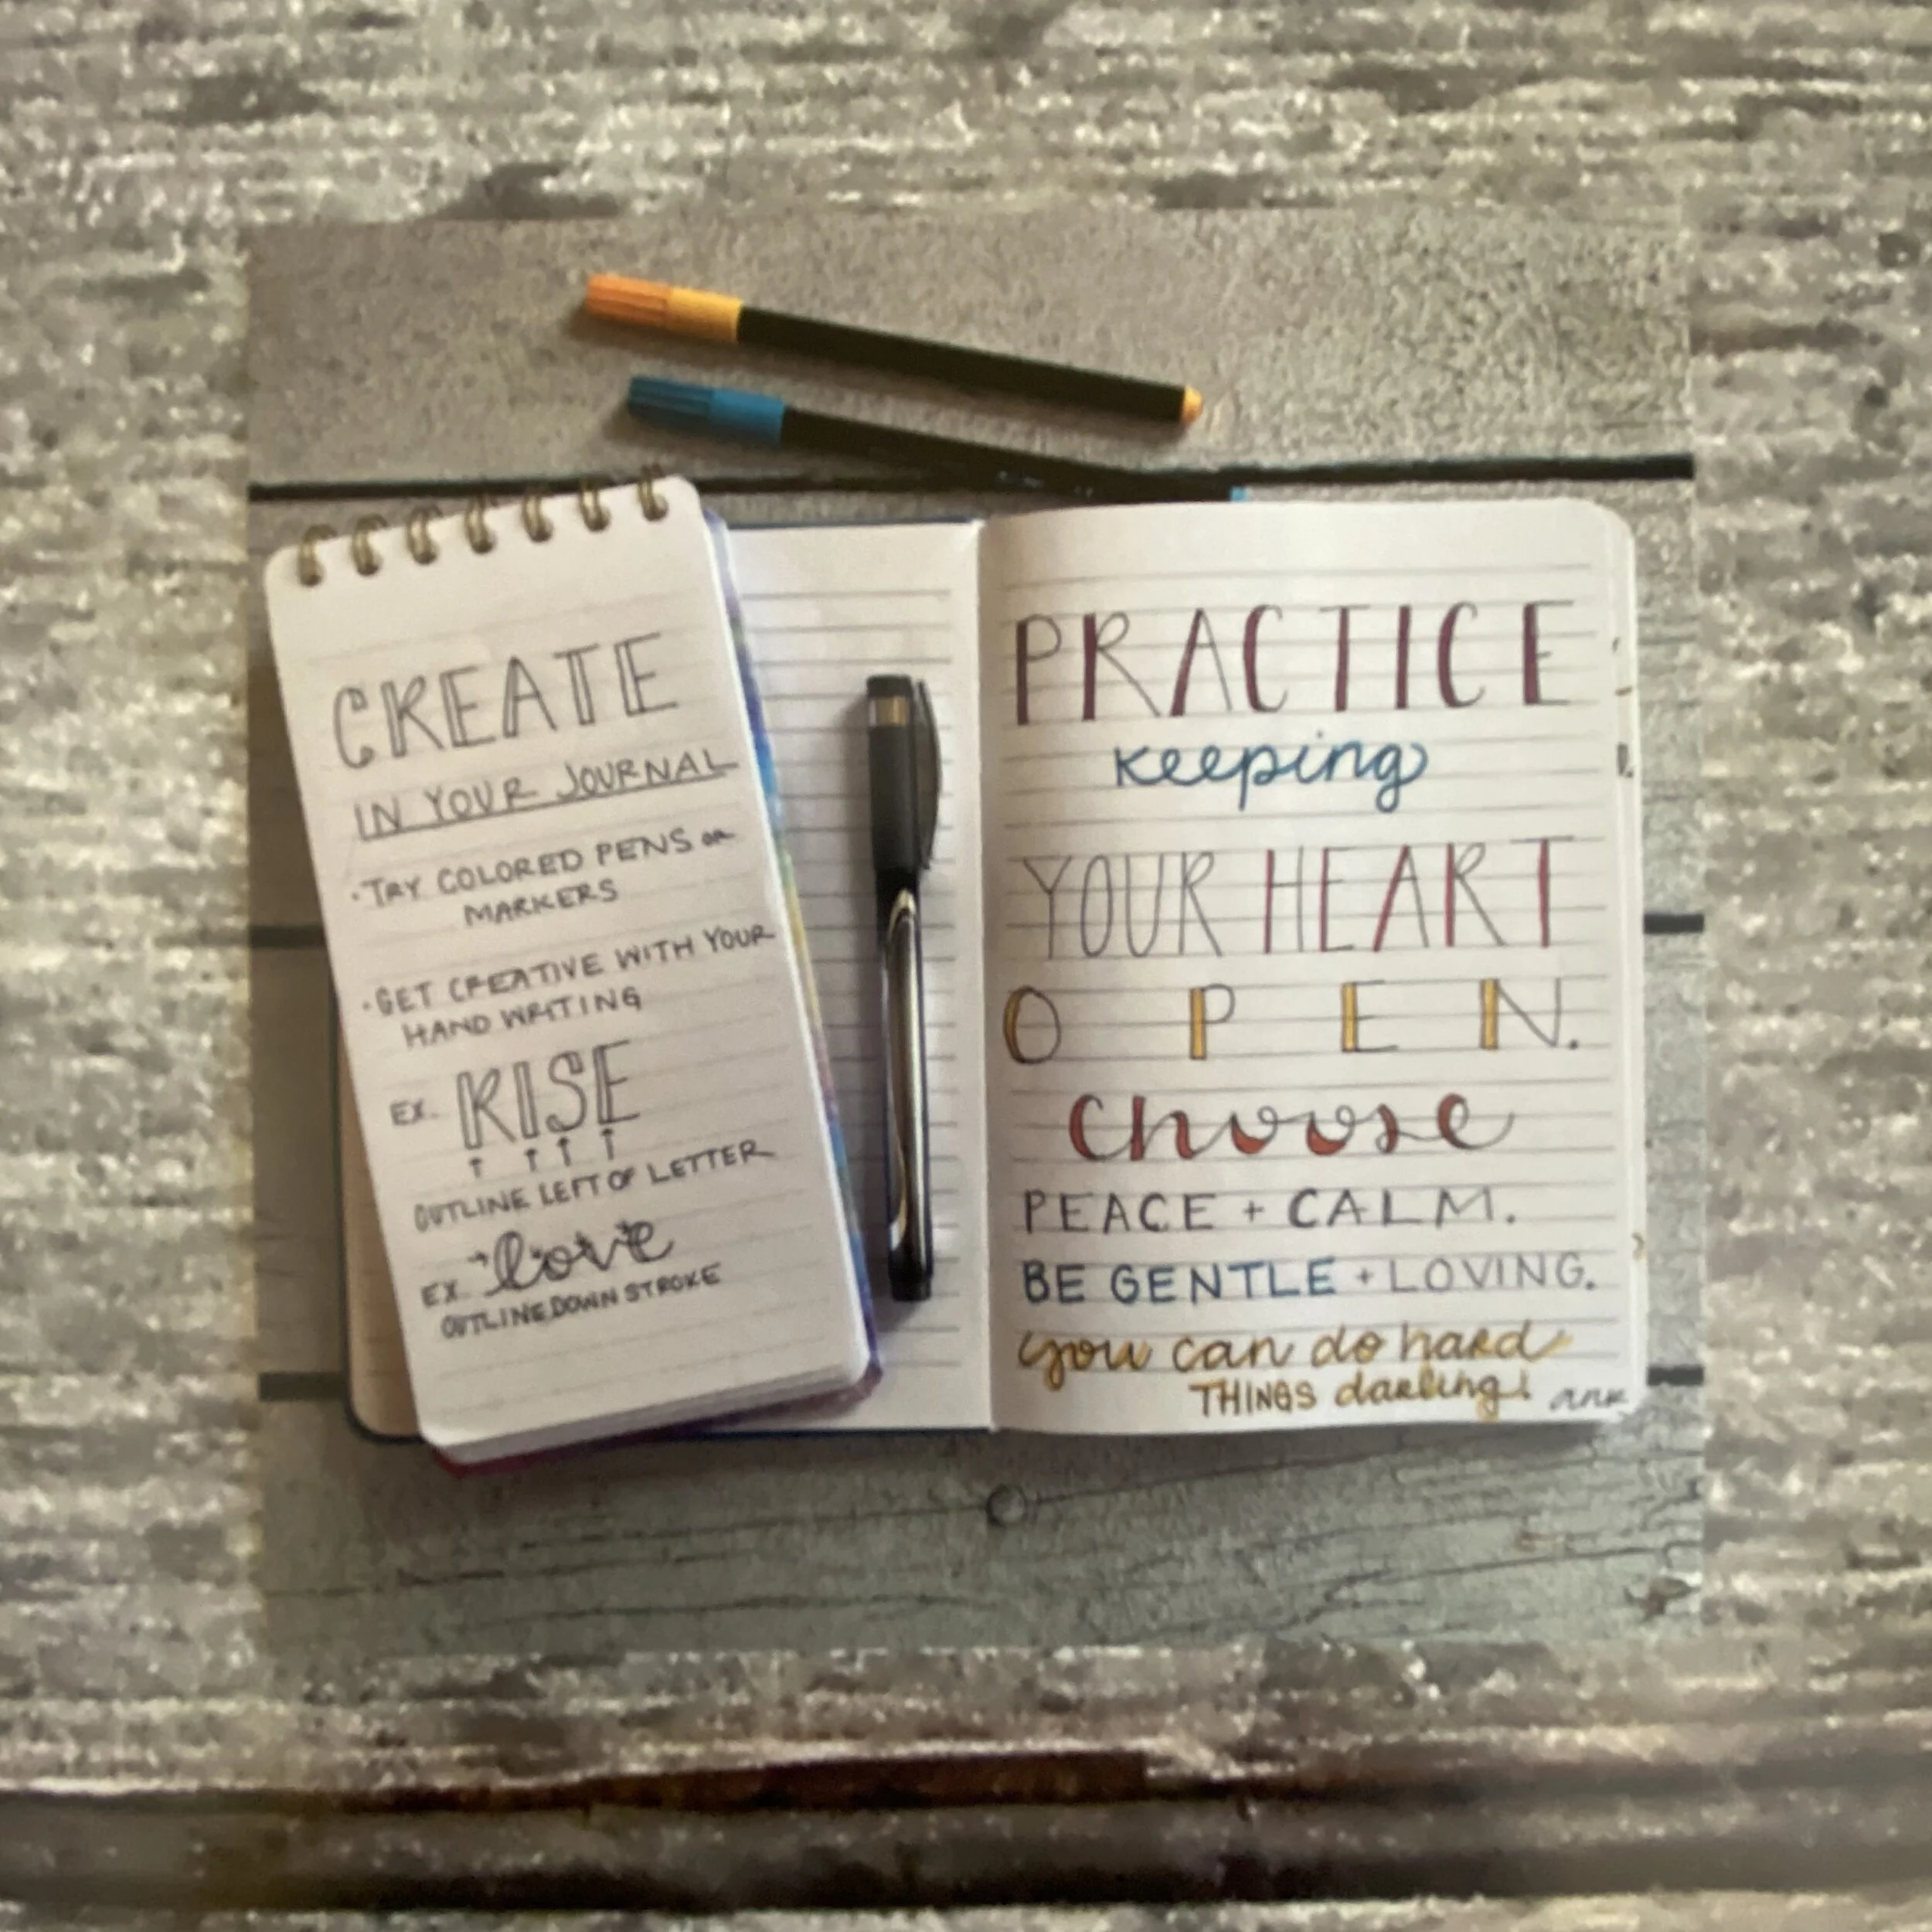 CREATE
IN YOUR JOURNAL
• TRY COLORED PENS or
MARKERS
• GET CREATIVE WITH YOUR
HAND WRITING
EX. RISE
OUTLINE LEFT OF LETTER
EX. love
OUTLINE DOWN STROKE
PRACTICE
keeping
YOUR HEART
OPEN.
choose
PEACE + CALM.
BE GENTLE + LOVING.
you can do hard
THINGS darling!